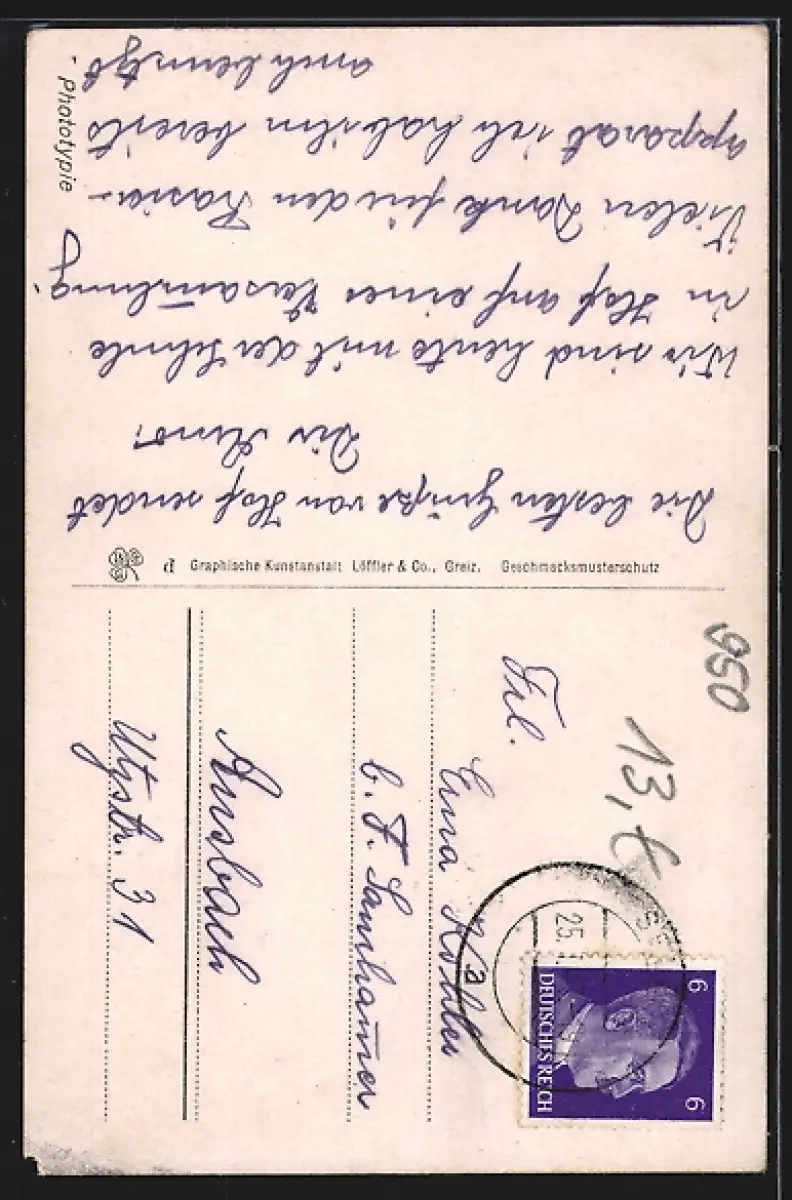 Die besten Grüße von Hof sendet
Dir
Wir sind heute mit der Schule
in Hof auf einer Versammlung.
Vielen Dank für den Rasier-
apparat ich hab ihn bereits
auch benutzt.
Phototypie
d Graphische Kunstanstalt Löffler & Co., Greiz. Geschmacksmusterschutz
950
13,
Frl.
Erna Köhler
b. F.
Ansbach
Utzstr. 31
25.
a
DEUTSCHES REICH
6
6